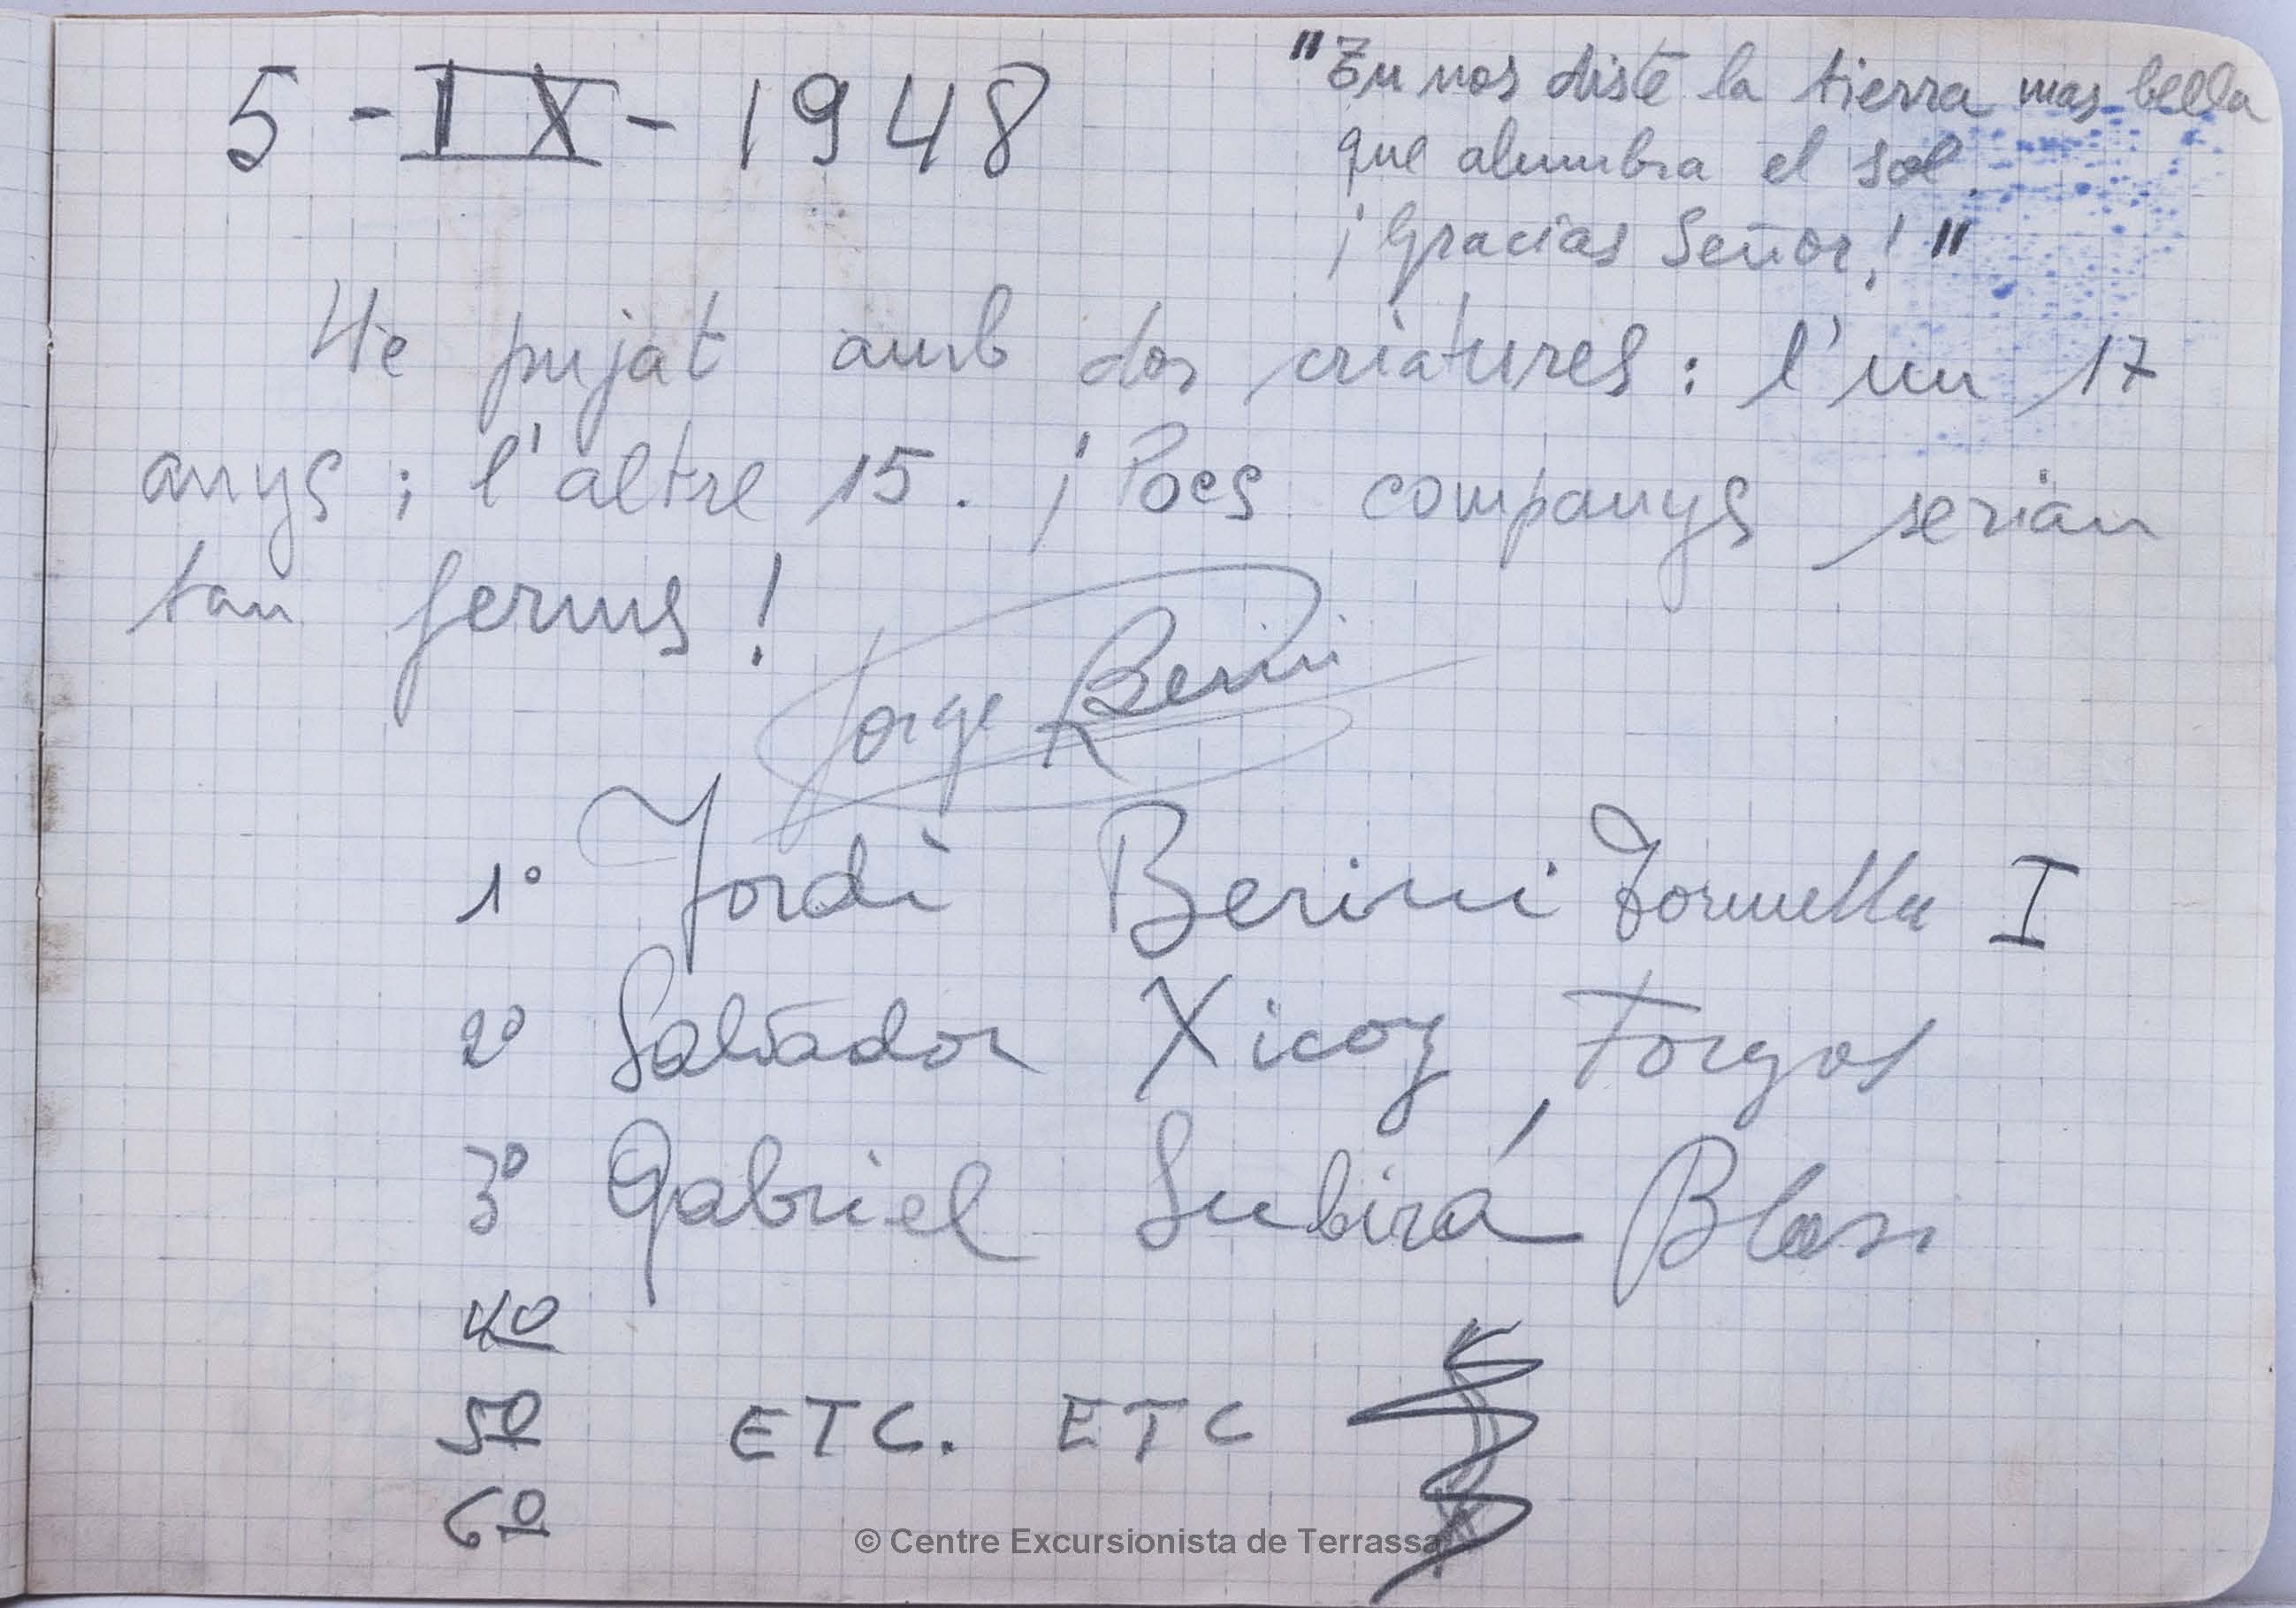 5-IX-1948
"Tu nos diste la tierra mas bella
que alumbra el sol.
¡Gracias Señor!"
He pujat amb dos criatures: l'un 17
anys; l'altre 15. ¡Pocs companys serian
tan ferms!
Jorge Berini
1º Jordi Berini I
2º Salvador Xicoy Forgas
3º Gabriel Subirá Blasi
4º
5º ETC. ETC
6º
© Centre Excursionista de Terrassa